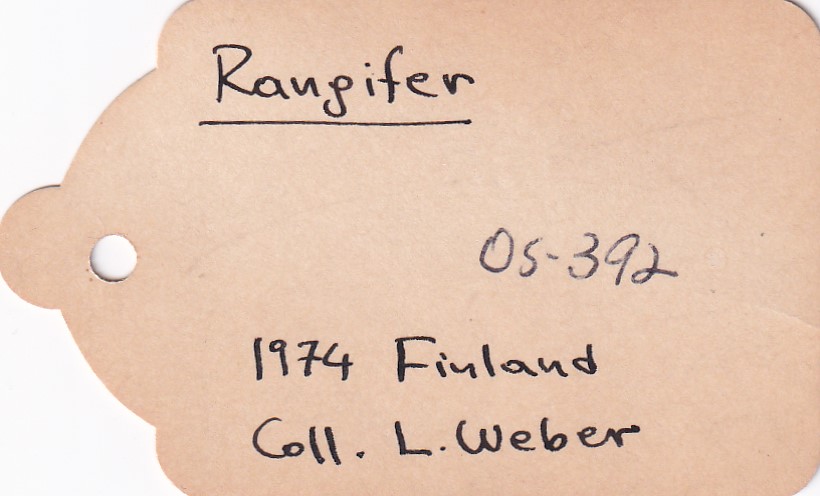 Rangifer
OS-392
1974 Finland
Coll. L. Weber